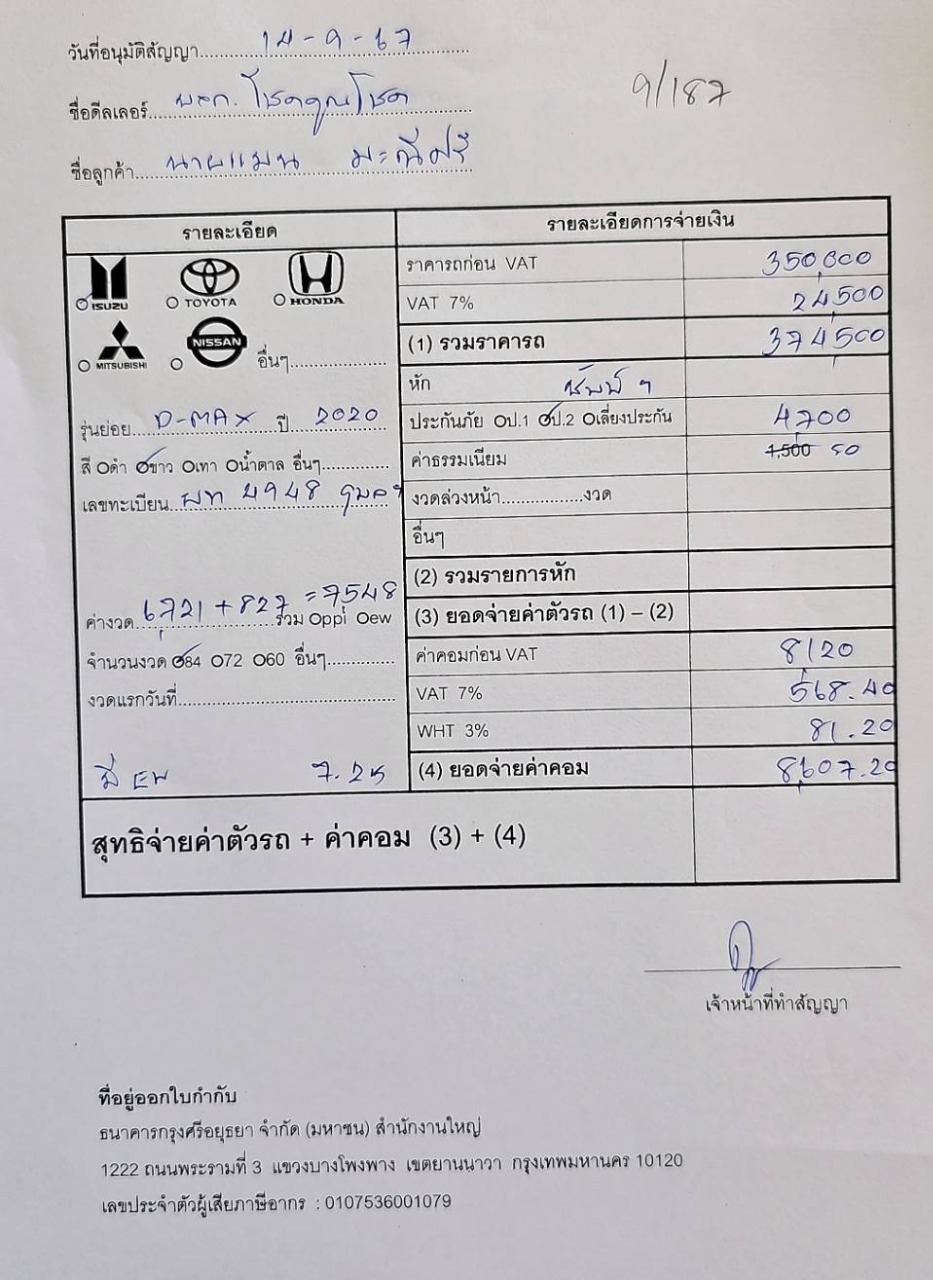 วันที่อนุมัติสัญญา 14-9-67
9/187
ชื่อดีลเลอร์ หจก. โชคคูณโชค
ชื่อลูกค้า นายแมน มะณีศรี
รายละเอียด
รายละเอียดการจ่ายเงิน
ISUZU TOYOTA HONDA
ราคารถก่อน VAT 350,000
VAT 7% 24,500
MITSUBISHI NISSAN อื่นๆ
(1) รวมราคารถ 374,500
หัก
รุ่นย่อย D-MAX ปี 2020
ประกันภัย Oป.1 Oป.2 Oเลี่ยงประกัน 4,700
สี Oดำ Oขาว Oเทา Oน้ำตาล อื่นๆ
ค่าธรรมเนียม 1,500 50
เลขทะเบียน ผท 4948
งวดล่วงหน้า งวด
อื่นๆ
(2) รวมรายการหัก
ค่างวด 6,721 + 827 = 7548 รวม Oppi Oew
(3) ยอดจ่ายค่าตัวรถ (1) – (2)
จำนวนงวด O84 O72 O60 อื่นๆ
ค่าคอมก่อน VAT 8,120
งวดแรกวันที่
VAT 7% 568.40
WHT 3% 81.20
มี EW 7.25
(4) ยอดจ่ายค่าคอม 8,607.20
สุทธิจ่ายค่าตัวรถ + ค่าคอม (3) + (4)
เจ้าหน้าที่ทำสัญญา
ที่อยู่ออกใบกำกับ
ธนาคารกรุงศรีอยุธยา จำกัด (มหาชน) สำนักงานใหญ่
1222 ถนนพระรามที่ 3 แขวงบางโพงพาง เขตยานนาวา กรุงเทพมหานคร 10120
เลขประจำตัวผู้เสียภาษีอากร : 0107536001079